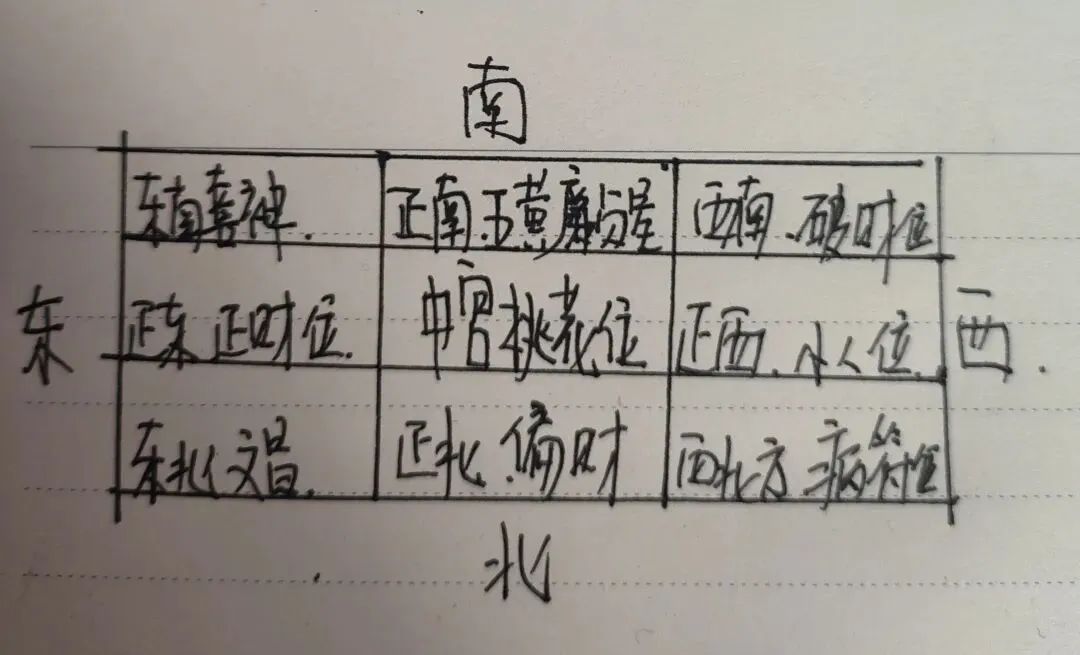 南
东南喜神.
正南.五黄廉贞星
西南.破财位
东
正东 正财位.
中宫桃花位
正西.小人位.
西.
东北文昌.
正北.偏财
西北方 病符位
北